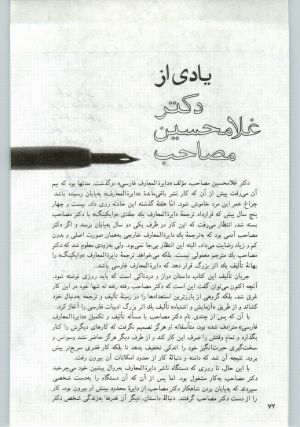 یادی از
دکتر
غلامحسین
مصاحب
دکتر غلامحسین مصاحب، مؤلف «دایرةالمعارف فارسی» درگذشت. مدتها بود که بیم
آن می‌رفت پیش از آن که کار نشر باقی‌ماندهٔ «دایرةالمعارف» به‌پایان رسیده باشد
چراغ عمر این مرد خاموش شود. اما هفتهٔ گذشته این حادثه روی داد. بیست و چهار
پنج سال پیش که قرارداد ترجمهٔ دایرةالمعارف یك جلدی «وایکینگ» با دکتر مصاحب
بسته شد، انتظار می‌رفت که این کار در ظرف یکی دو سال به‌پایان برسد و اگر دکتر
مصاحب آدمی بود که به‌ترجمهٔ یك دایرةالمعارف خارجی به‌همان صورت اصلی و بدون
کم و زیاد رضایت می‌داد، البته این انتظار بی‌جا نمی‌بود. ولی به‌زودی معلوم شد که دکتر
مصاحب یك مترجم معمولی نیست، بلکه می‌خواهد ترجمهٔ دایرةالمعارف «وایکینگ» را
بهانهٔ تألیف یك اثر بزرگ قرار دهد که دایرةالمعارف فارسی باشد.
جریان تألیف این کتاب داستان دراز و دردناکی است که باید روزی نوشته شود.
آنچه اکنون می‌توان گفت این است که دکتر مصاحب رفته رفته نه تنها خود در این کار
غرق شد، بلکه گروهی از بارزترین استعدادها را در زمینهٔ تألیف و ترجمه به‌دنبال خود
کشاند و از طریق «آزمایش و اشتباه» تألیف یك اثر بزرگ ادبیات فارسی را آغاز کرد.
با آن که پس از چندی، نام دکتر مصاحب با مسألهٔ تألیف و تکمیل «دایرةالمعارف
فارسی» مترادف شده بود، متأسفانه او هرگز تصمیم نگرفت که کارهای دیگرش را کنار
بگذارد و تمام وقتش را صرف این کار کند و از طرف دیگر هرگز حاضر نشد وسواس و
سخت‌گیری حیرت‌انگیز خود را اندکی تخفیف دهد تا بلکه کار قدری سریع‌تر پیش
برود. نتیجه آن شد که دامنه و دنبالهٔ کار از حدود امکانات آن بیرون رفت.
با این حال، تا روزی که دستگاه ناشر دایرةالمعارف به‌روال پیشین خود می‌چرخید
دکتر مصاحب به‌کار مشغول بود. اما پس از آن که آن دستگاه را به‌دست شخصی
سپردند که به‌پایان بردن شاهکار دکتر مصاحب از حدود همتهٔ بینش او بیرون بود، کار
را از دست دکتر مصاحب گرفتند. دنبالهٔ داستان، دیگر آن قدرها به‌زندگی شخص دکتر
۷۲